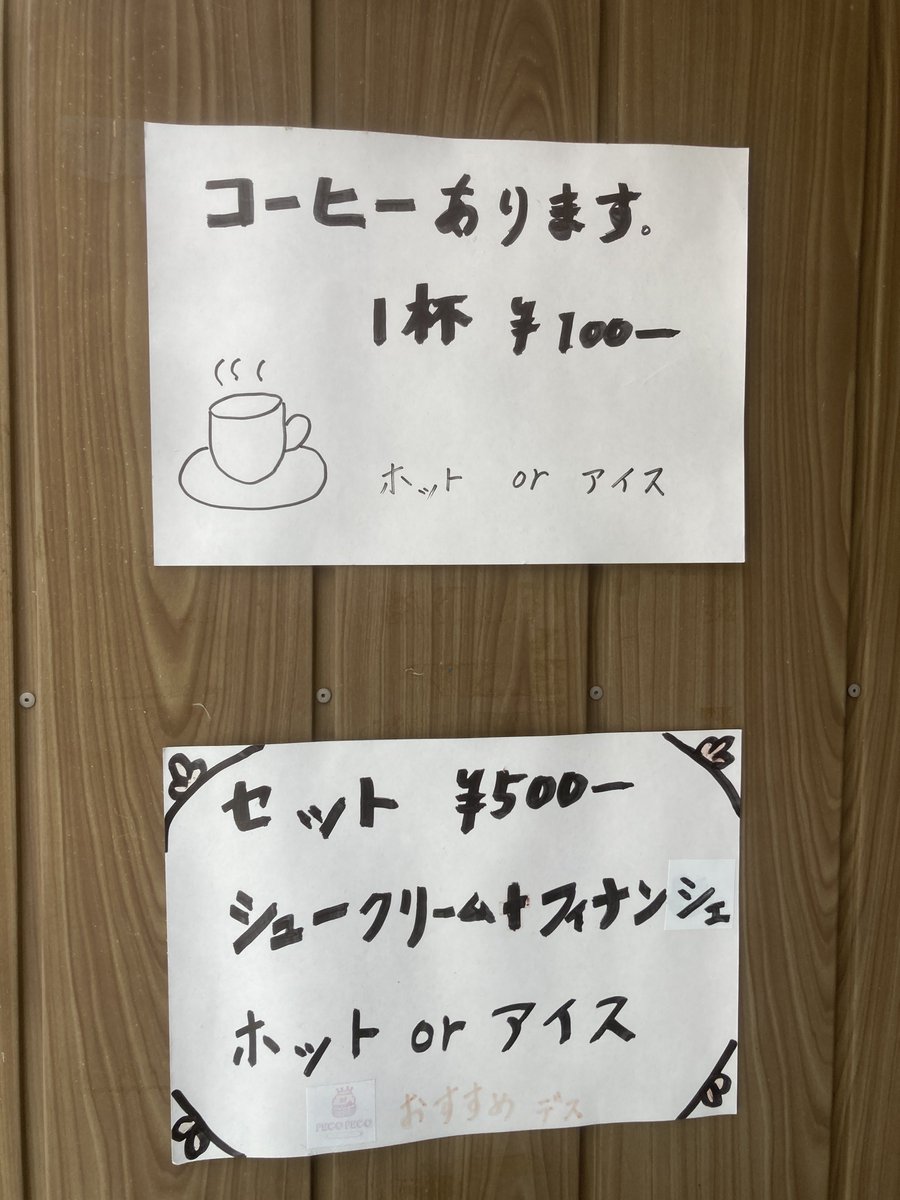 コーヒーあります。
1杯 ¥100ー
ホット or アイス
セット ¥500ー
シュークリーム+フィナンシェ
ホット or アイス
PECO PECO
おすすめ デス